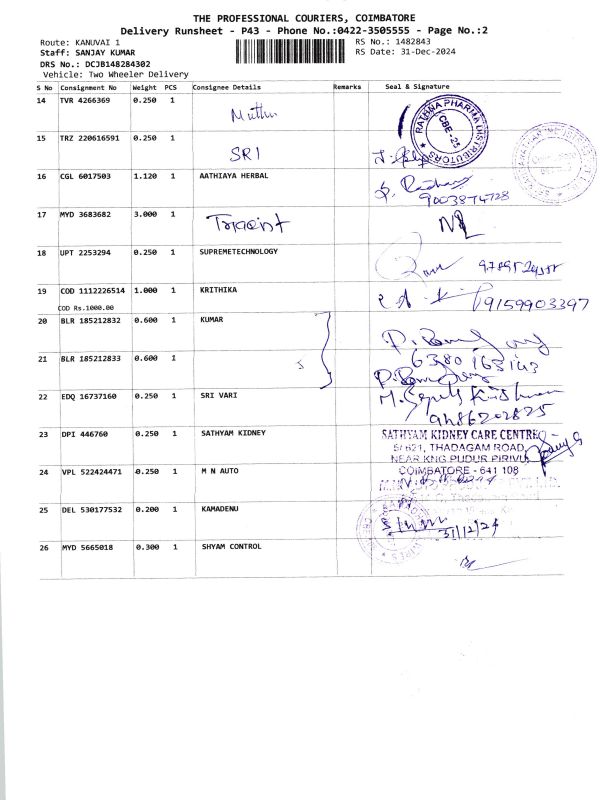 THE PROFESSIONAL COURIERS, COIMBATORE
Delivery Runsheet - P43 - Phone No.:0422-3505555 - Page No.:2
Route: KANUVAI 1 RS No.: 1482843
Staff: SANJAY KUMAR RS Date: 31-Dec-2024
DRS No.: DCJB148284302
Vehicle: Two Wheeler Delivery
S No Consignment No Weight PCS Consignee Details Remarks Seal & Signature
14 TVR 4266369 0.250 1 Muthu RATHNA PHARMA DISTRIBUTORS CBE-25
15 TRZ 220616591 0.250 1 SRI
16 CGL 6017503 1.120 1 AATHIAYA HERBAL
9003874728
17 MYD 3683682 3.000 1
18 UPT 2253294 0.250 1 SUPREMETECHNOLOGY
19 COD 1112226514 1.000 1 KRITHIKA 9159903397
COD Rs.1000.00
20 BLR 185212832 0.600 1 KUMAR
6380165143
21 BLR 185212833 0.600 1
22 EDQ 16737160 0.250 1 SRI VARI
9486202825
23 DPI 446760 0.250 1 SATHYAM KIDNEY SATHYAM KIDNEY CARE CENTRE
5/621, THADAGAM ROAD,
NEAR KNG PUDUR PIRIVU
COIMBATORE - 641 108
24 VPL 522424471 0.250 1 M N AUTO
25 DEL 530177532 0.200 1 KAMADENU
31/12/24
26 MYD 5665018 0.300 1 SHYAM CONTROL